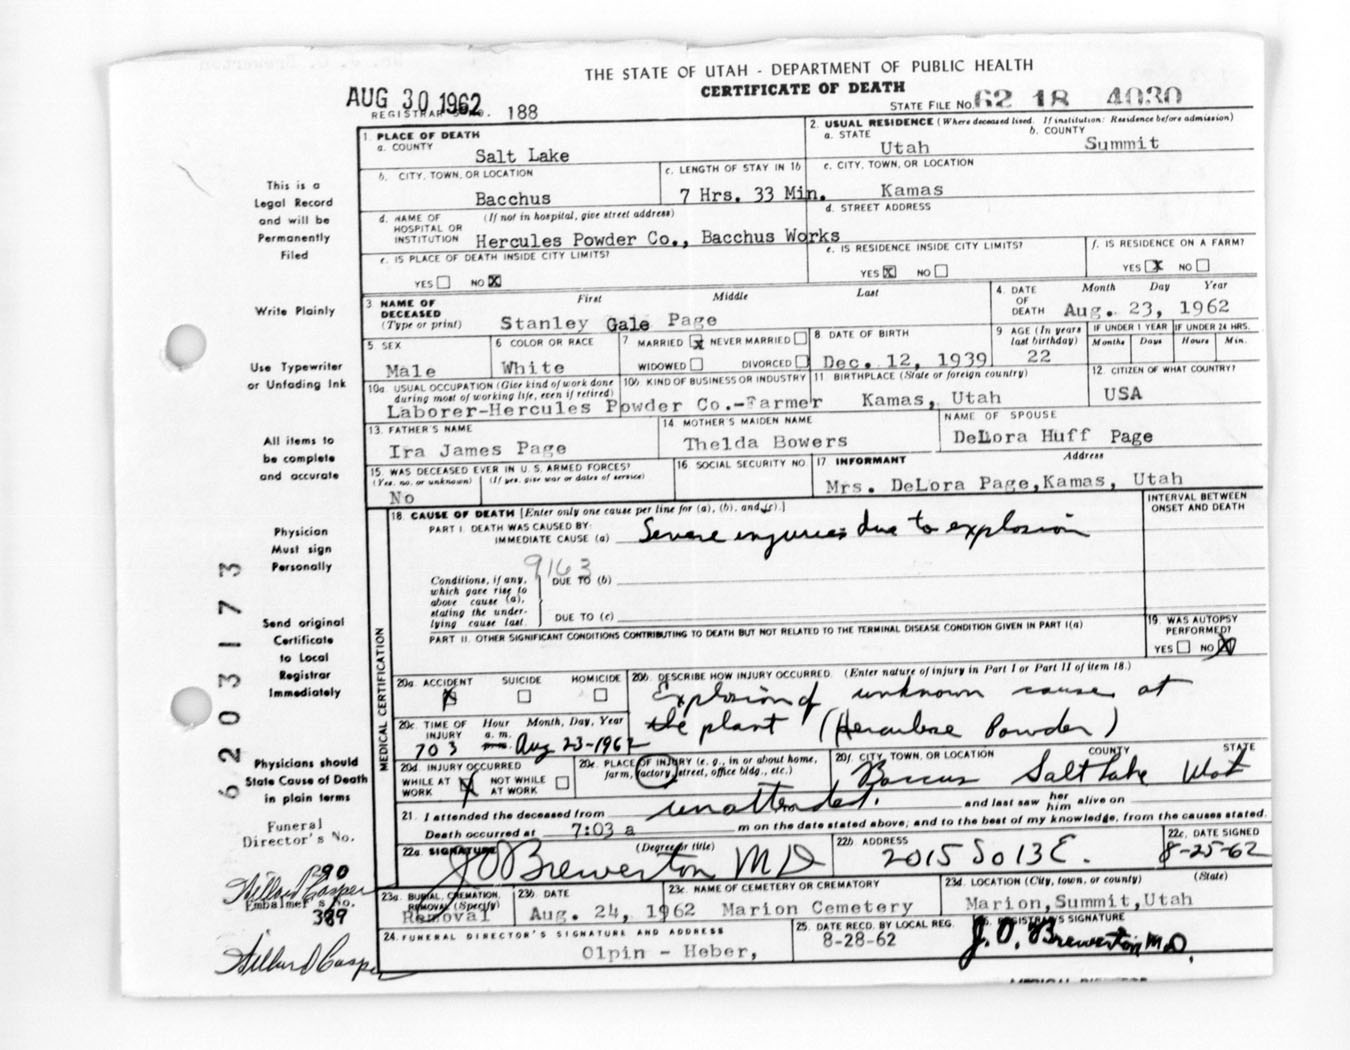 THE STATE OF UTAH - DEPARTMENT OF PUBLIC HEALTH
CERTIFICATE OF DEATH
AUG 30 1962
REGISTRAR'S NO. 188
STATE FILE No. 62 18 4030
1. PLACE OF DEATH
a. COUNTY
Salt Lake
2. USUAL RESIDENCE (Where deceased lived. If institution: Residence before admission)
a. STATE
Utah
b. COUNTY
Summit
b. CITY, TOWN, OR LOCATION
Bacchus
c. LENGTH OF STAY IN 1b
7 Hrs. 33 Min.
c. CITY, TOWN, OR LOCATION
Kamas
d. NAME OF HOSPITAL OR INSTITUTION
(If not in hospital, give street address)
Hercules Powder Co., Bacchus Works
d. STREET ADDRESS
e. IS PLACE OF DEATH INSIDE CITY LIMITS?
YES NO X
e. IS RESIDENCE INSIDE CITY LIMITS?
YES X NO
f. IS RESIDENCE ON A FARM?
YES X NO
3 NAME OF DECEASED
(Type or print)
First Middle Last
Stanley Gale Page
4. DATE OF DEATH
Month Day Year
Aug. 23, 1962
5. SEX
Male
6 COLOR OR RACE
White
7 MARRIED X NEVER MARRIED
WIDOWED DIVORCED
8 DATE OF BIRTH
Dec. 12, 1939
9 AGE (In years last birthday)
22
IF UNDER 1 YEAR
Months Days
IF UNDER 24 HRS.
Hours Min.
10a. USUAL OCCUPATION (Give kind of work done during most of working life, even if retired)
10b KIND OF BUSINESS OR INDUSTRY
Laborer-Hercules Powder Co.-Farmer
11 BIRTHPLACE (State or foreign country)
Kamas, Utah
12. CITIZEN OF WHAT COUNTRY?
USA
13. FATHER'S NAME
Ira James Page
14 MOTHER'S MAIDEN NAME
Thelda Bowers
NAME OF SPOUSE
DeLora Huff Page
15. WAS DECEASED EVER IN U. S. ARMED FORCES?
(Yes, no, or unknown) (If yes, give war or dates of service)
No
16 SOCIAL SECURITY NO.
17 INFORMANT Address
Mrs. DeLora Page, Kamas, Utah
18. CAUSE OF DEATH [Enter only one cause per line for (a), (b), and (c).]
INTERVAL BETWEEN ONSET AND DEATH
PART I. DEATH WAS CAUSED BY:
IMMEDIATE CAUSE (a) Severe injuries due to explosion
9163
Conditions, if any, which gave rise to above cause (a), stating the underlying cause last.
DUE TO (b)
DUE TO (c)
PART II. OTHER SIGNIFICANT CONDITIONS CONTRIBUTING TO DEATH BUT NOT RELATED TO THE TERMINAL DISEASE CONDITION GIVEN IN PART I(a)
19. WAS AUTOPSY PERFORMED?
YES NO X
MEDICAL CERTIFICATION
20a. ACCIDENT SUICIDE HOMICIDE
X
20b. DESCRIBE HOW INJURY OCCURRED. (Enter nature of injury in Part I or Part II of item 18.)
Explosion of unknown cause at
the plant (Hercules Powder)
20c. TIME OF INJURY
Hour Month, Day, Year
703 a. m. Aug 23-1962
20d INJURY OCCURRED
WHILE AT WORK X NOT WHILE AT WORK
20e. PLACE OF INJURY (e. g., in or about home, farm, factory, street, office bldg., etc.)
20f. CITY, TOWN, OR LOCATION COUNTY STATE
Baccus Salt Lake Utah
21. I attended the deceased from unattended. and last saw her him alive on
Death occurred at 7:03 a m on the date stated above; and to the best of my knowledge, from the causes stated.
22a. SIGNATURE (Degree or title)
J O Brewerton MD
22b ADDRESS
2015 So 13 E.
22c. DATE SIGNED
8-25-62
23a. BURIAL, CREMATION, REMOVAL (Specify)
Removal
23b. DATE
Aug. 24, 1962
23c. NAME OF CEMETERY OR CREMATORY
Marion Cemetery
23d. LOCATION (City, town, or county) (State)
Marion, Summit, Utah
24. FUNERAL DIRECTOR'S SIGNATURE AND ADDRESS
Olpin - Heber,
25. DATE RECD. BY LOCAL REG.
8-28-62
REGISTRAR'S SIGNATURE
J. O. Brewerton M.D.
This is a
Legal Record
and will be
Permanently
Filed
Write Plainly
Use Typewriter
or Unfading Ink
All items to
be complete
and accurate
Physician
Must sign
Personally
Send original
Certificate
to Local
Registrar
Immediately
Physicians should
State Cause of Death
in plain terms
Funeral
Director's No.
Embalmer's No.
389
6203173